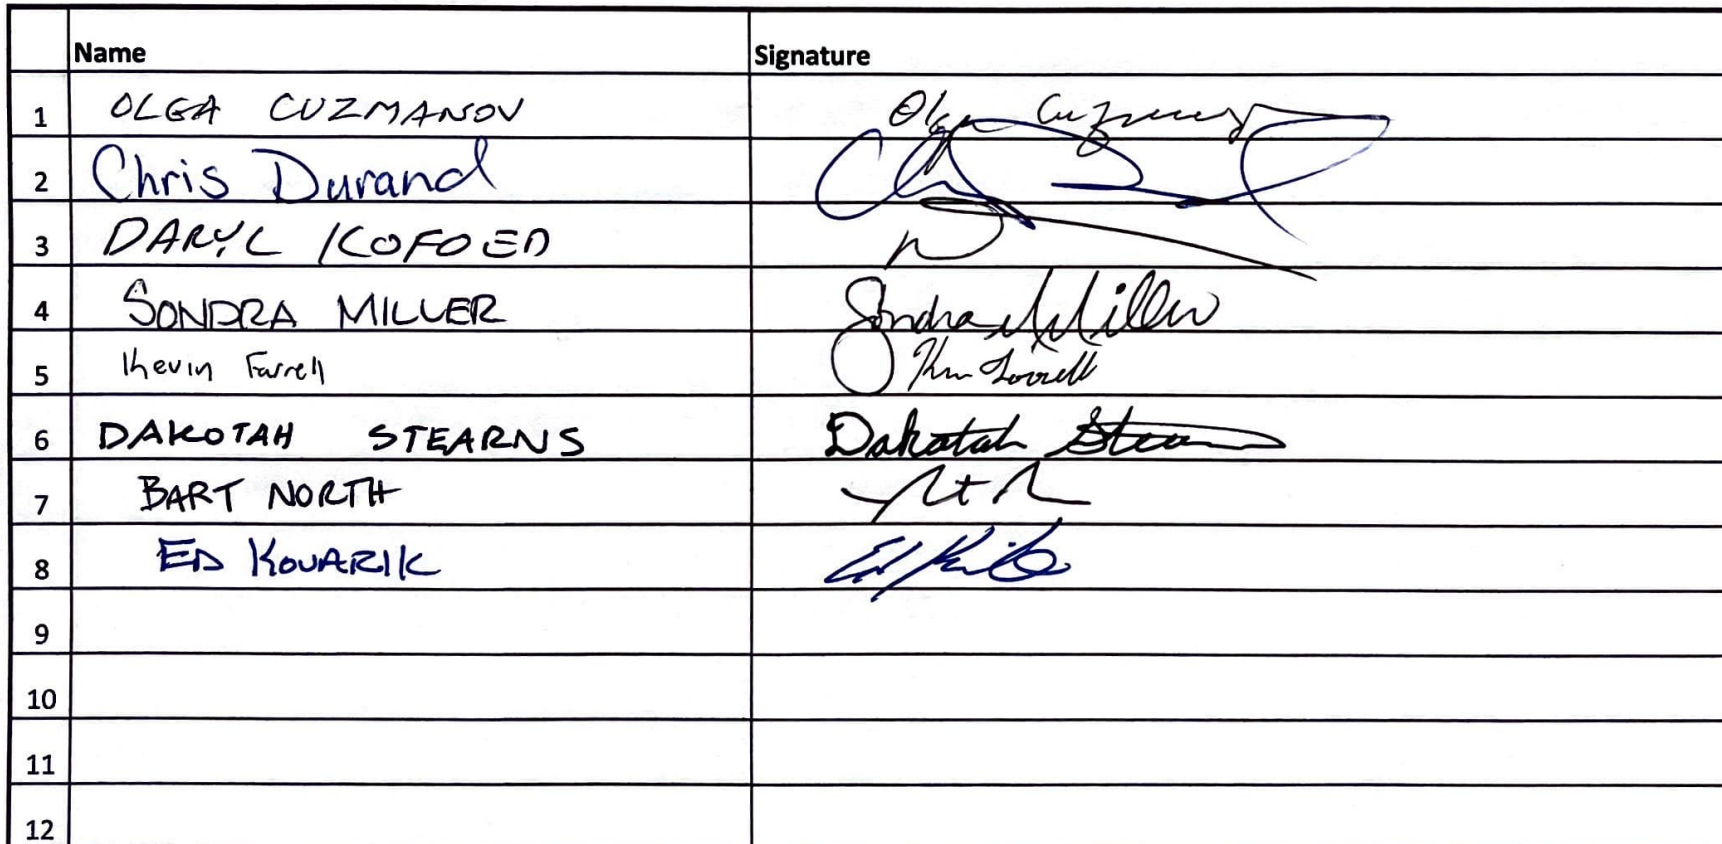 Name Signature
1 OLGA CUZMANOV Olga Cuzmanov
2 Chris Durand
3 DARYL KOFOED
4 SONDRA MILLER Sondra Miller
5 Kevin Farrell
6 DAKOTAH STEARNS Dakotah Stearns
7 BART NORTH
8 ED KOVARIK
9
10
11
12